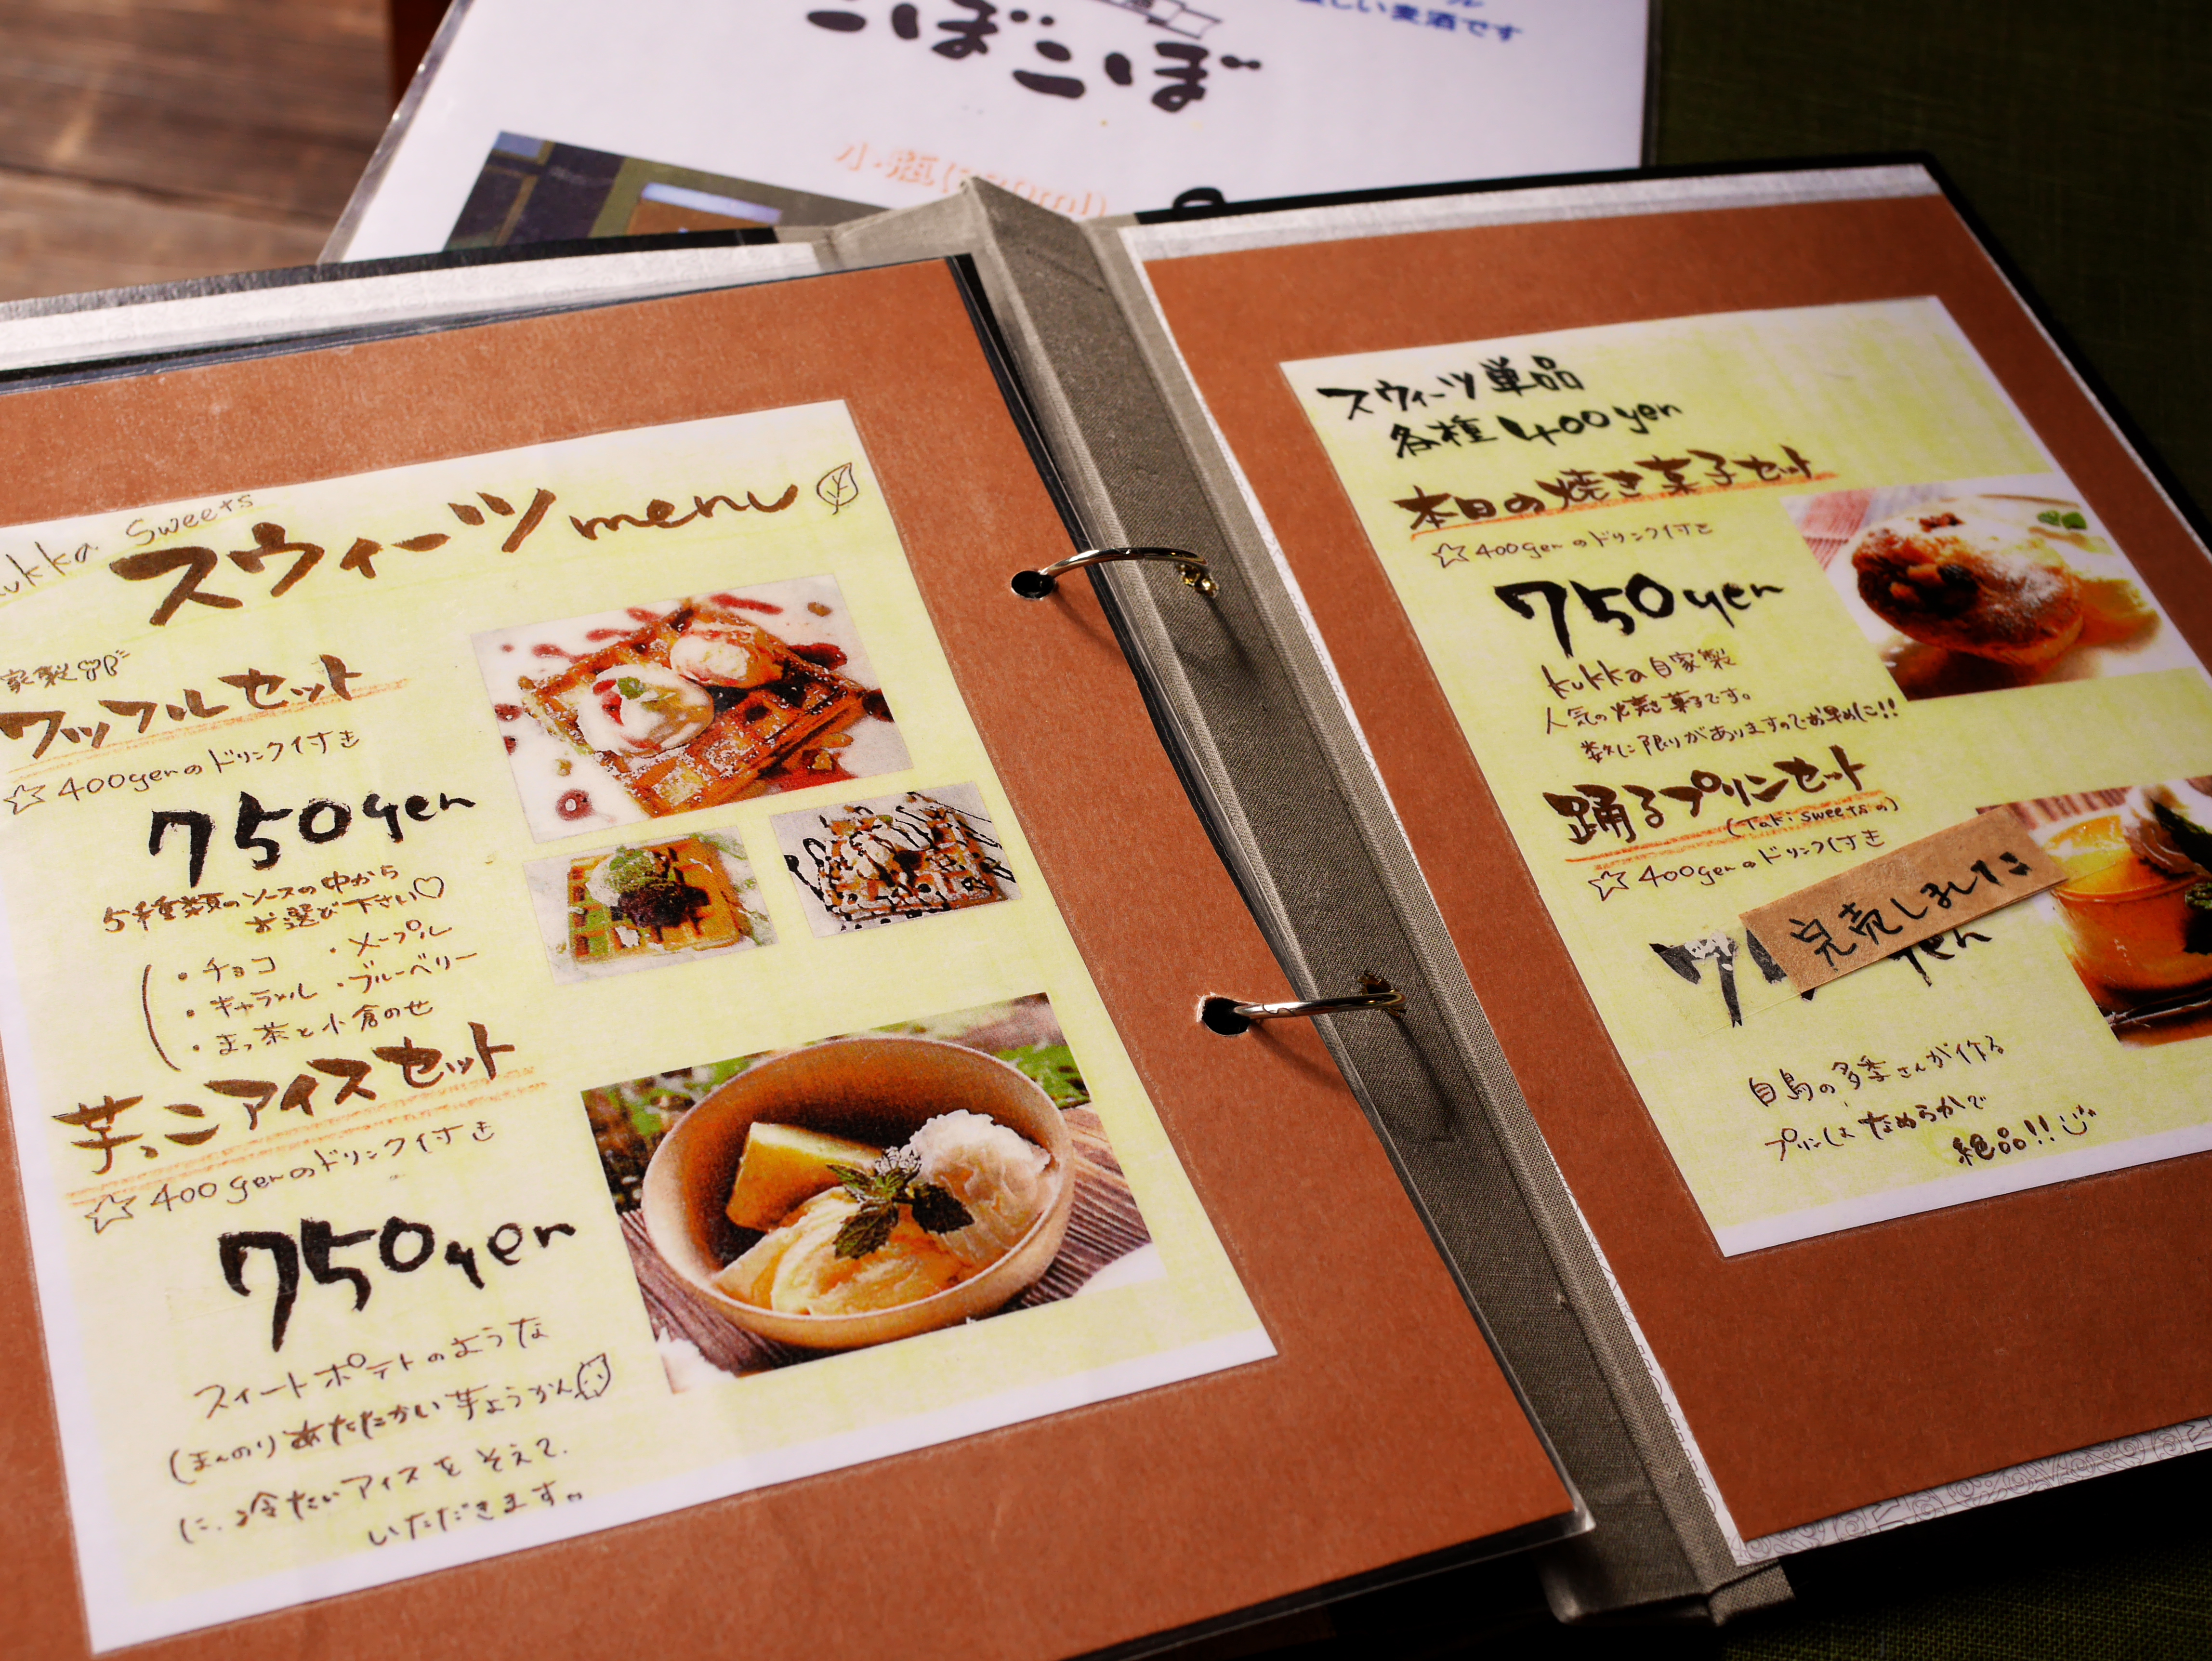 こぼこぼ
麦酒です
小瓶
kukka Sweets
スウィーツmenu
家製
ワッフルセット
☆400yenのドリンク付き
750yen
5種類のソースの中から
お選び下さい♡
・チョコ ・メープル
・キャラメル ・ブルーベリー
・まっ茶と小倉のせ
芋っこアイスセット
☆400yenのドリンク付き
750yen
スイートポテトのような
ほんのりあたたかい芋ようかん
に、冷たいアイスをそえて
いただきます。
スウィーツ単品
各種400yen
本日の焼き菓子セット
☆400yenのドリンク付き
750yen
kukka自家製
人気の焼き菓子です。
数に限りがありますのでお早めに!!
踊るプリンセット
(Taki sweetsの)
☆400yenのドリンク付き
完売しました
プリンはなめらかで
絶品!!